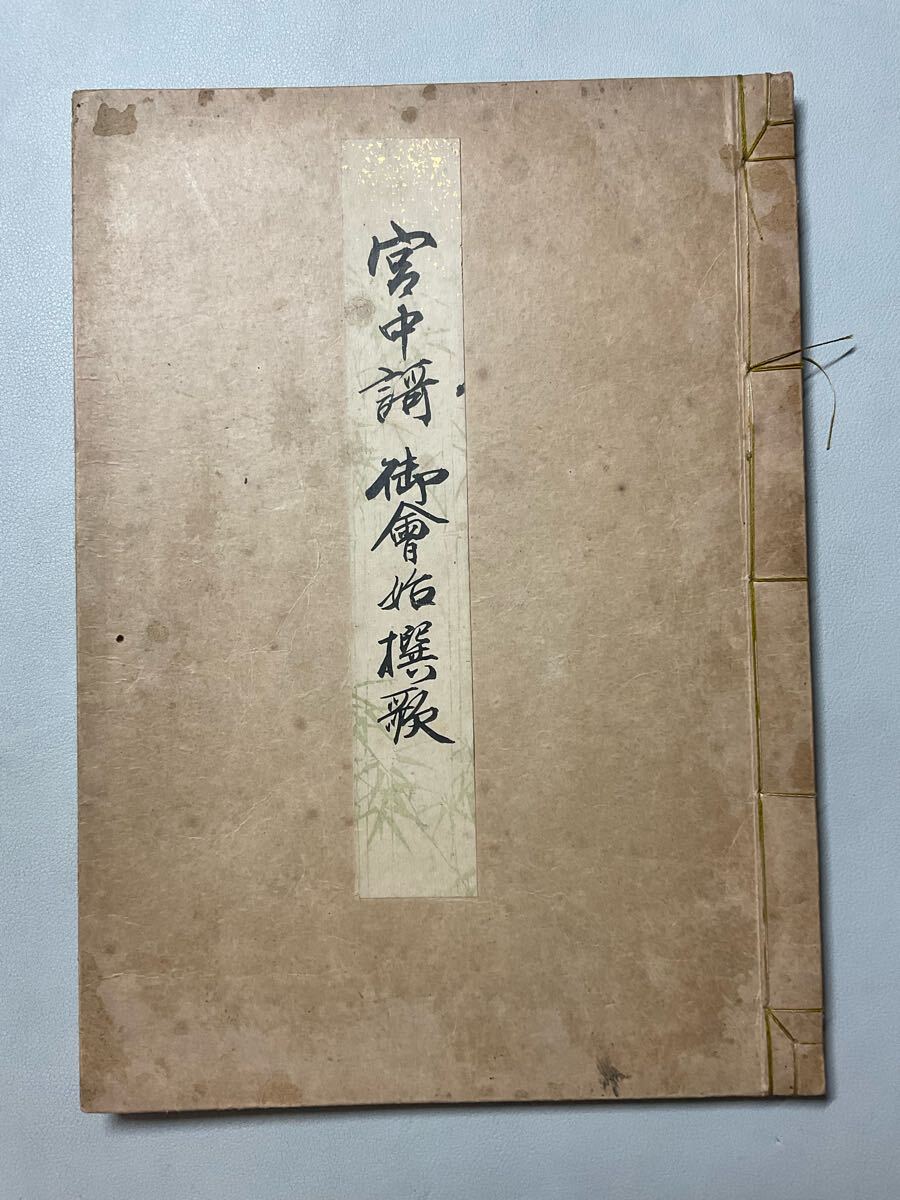 宮中謌御會始撰歌